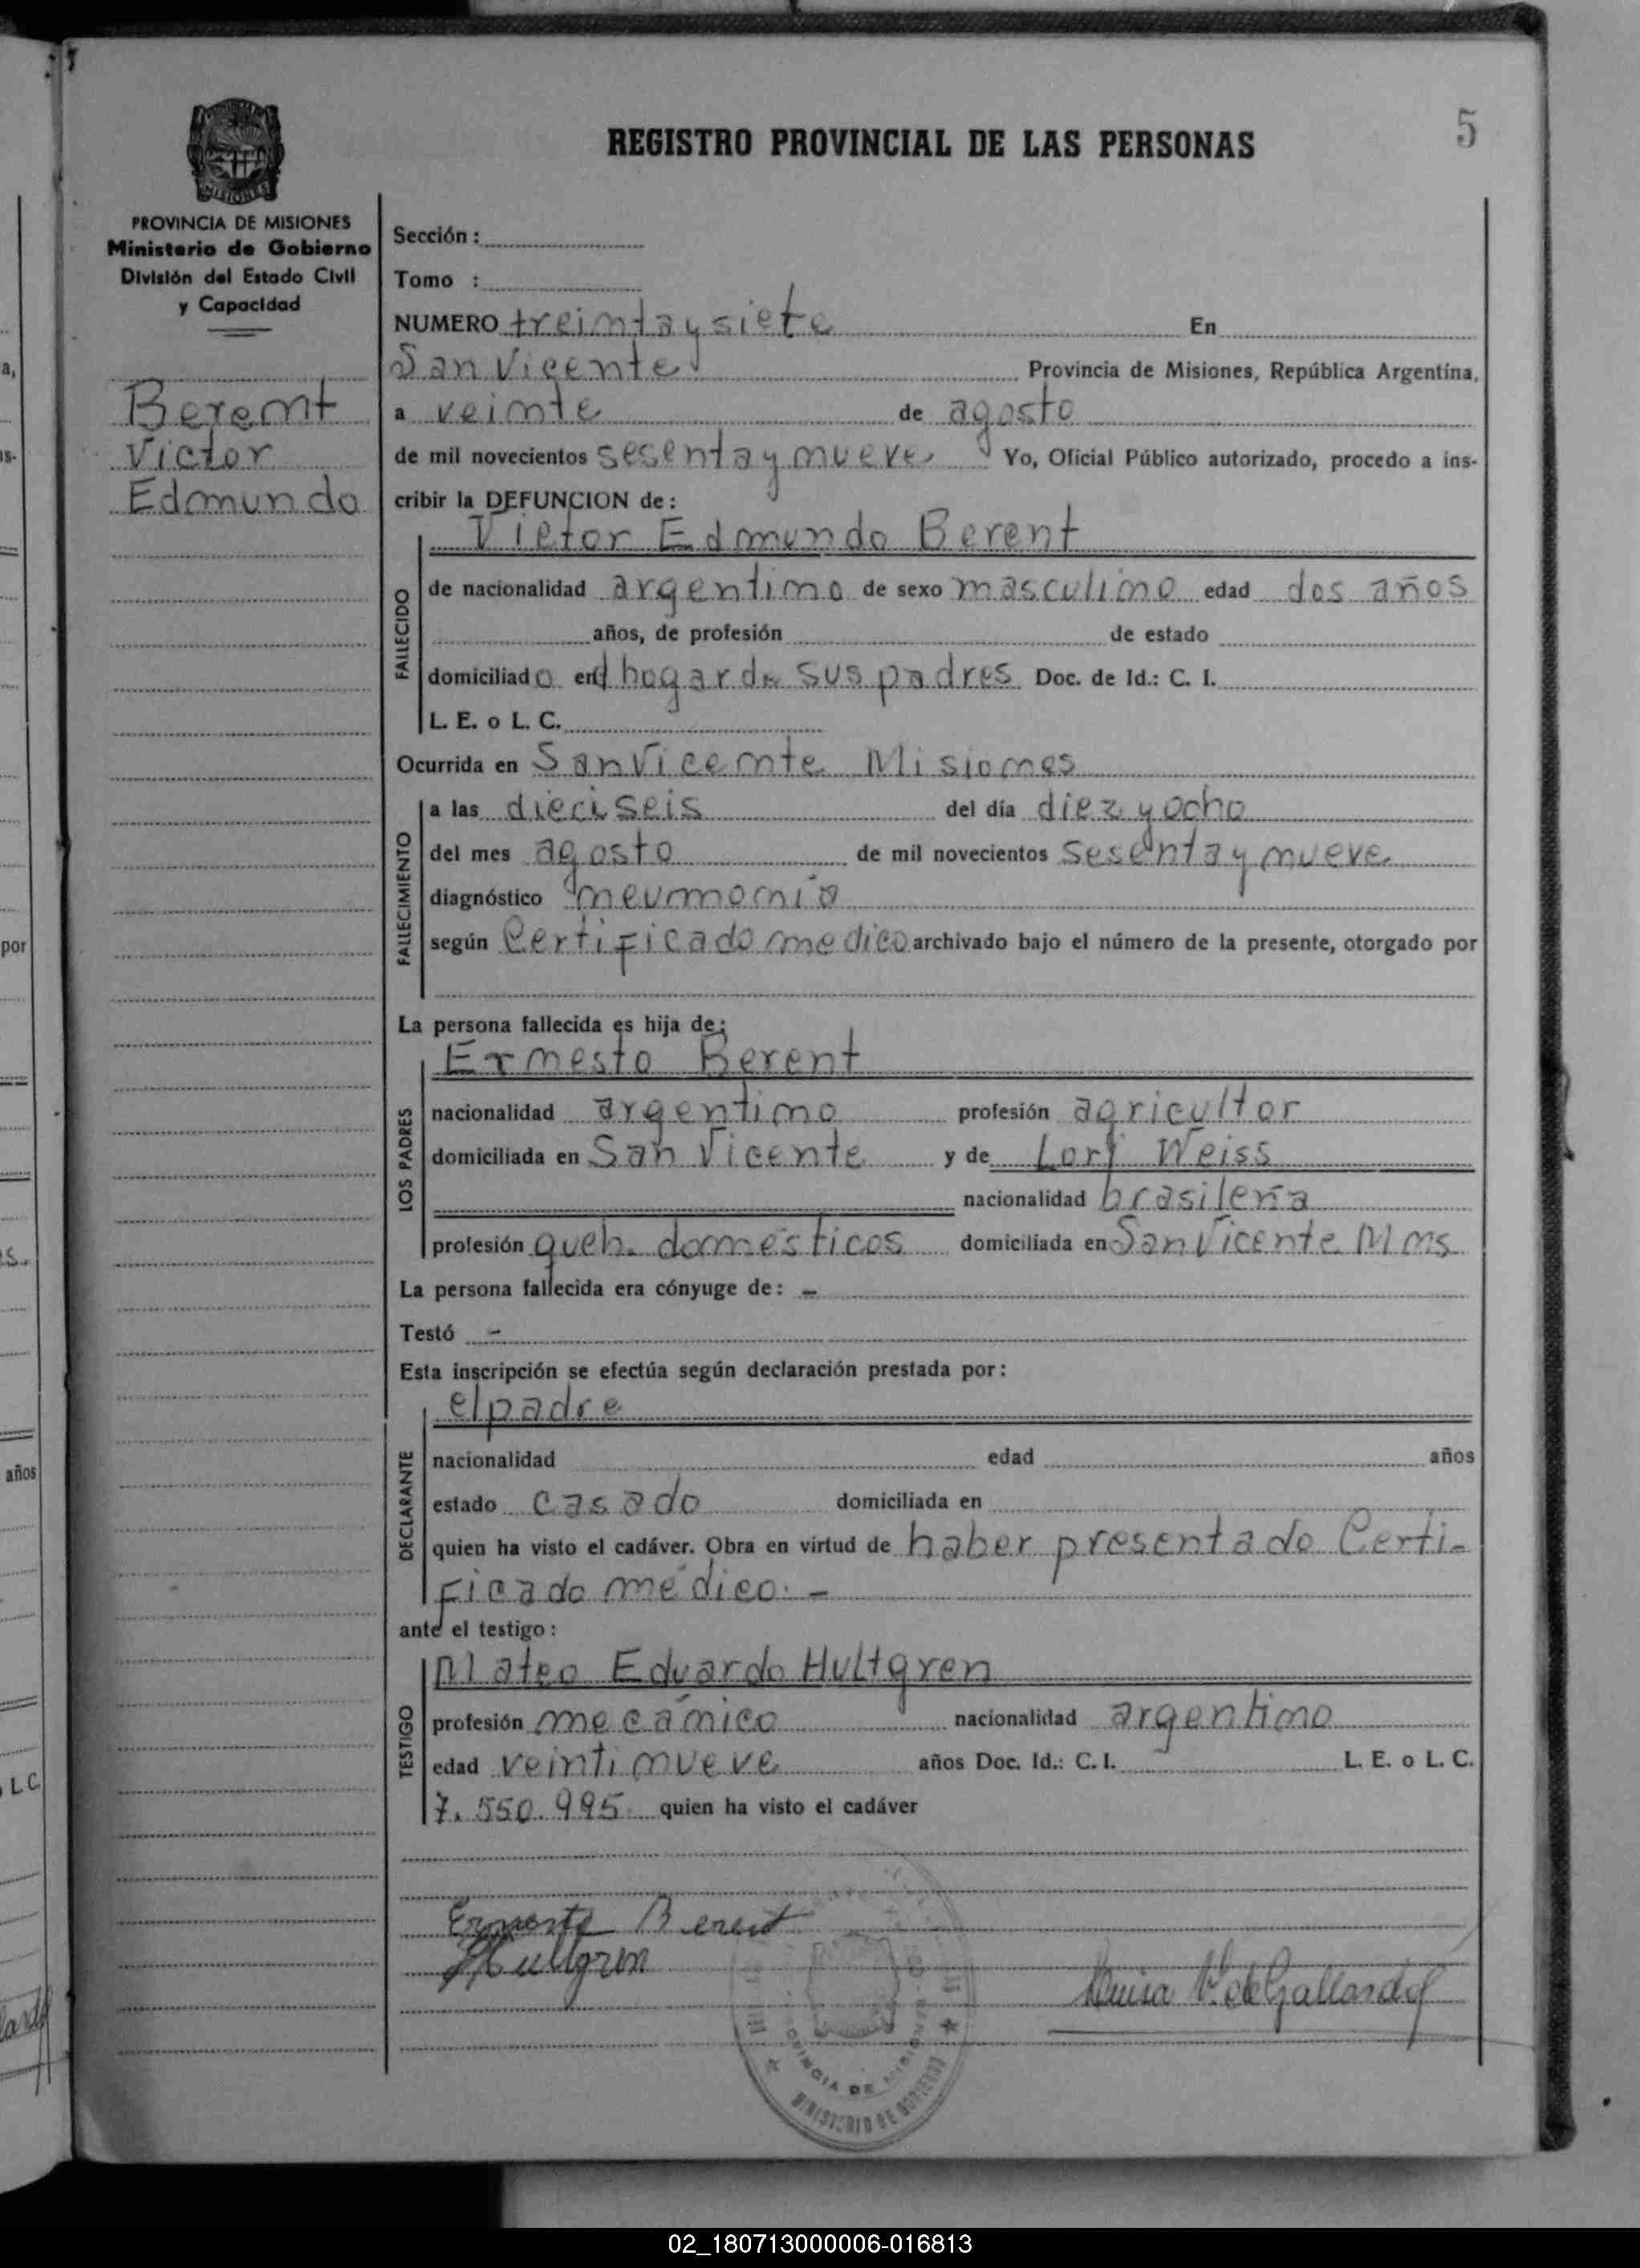 REGISTRO PROVINCIAL DE LAS PERSONAS
5
MISIONES
PROVINCIA DE MISIONES
Ministerio de Gobierno
División del Estado Civil
y Capacidad
Berent
Victor
Edmundo
Sección :
Tomo :
NUMERO treinta y siete En
San Vicente Provincia de Misiones, República Argentina,
a veinte de agosto
de mil novecientos sesenta y nueve Yo, Oficial Público autorizado, procedo a ins-
cribir la DEFUNCION de :
Victor Edmundo Berent
FALLECIDO
de nacionalidad argentino de sexo masculino edad dos años
años, de profesión de estado
domiciliado en hogar de sus padres Doc. de Id.: C. I.
L. E. o L. C.
Ocurrida en San Vicente Misiones
FALLECIMIENTO
a las dieciseis del día diez y ocho
del mes agosto de mil novecientos sesenta y nueve
diagnóstico neumonia
según Certificado medico archivado bajo el número de la presente, otorgado por
La persona fallecida es hija de:
Ernesto Berent
LOS PADRES
nacionalidad argentino profesión agricultor
domiciliada en San Vicente y de Lorj Weiss
nacionalidad brasileña
profesión queh. domésticos domiciliada en San Vicente Mnes
La persona fallecida era cónyuge de: -
Testó -
Esta inscripción se efectúa según declaración prestada por:
el padre
DECLARANTE
nacionalidad edad años
estado casado domiciliada en
quien ha visto el cadáver. Obra en virtud de haber presentado Certi-
ficado médico. -
ante el testigo:
Mateo Eduardo Hultgren
TESTIGO
profesión mecánico nacionalidad argentino
edad veintinueve años Doc. Id.: C. I. L. E. o L. C.
7.550.995 quien ha visto el cadáver
Ernesto Berent
Hultgren
V. de Gallardo
PROVINCIA DE MISIONES
MINISTERIO DE GOBIERNO
por
años
L C
02_180713000006-016813